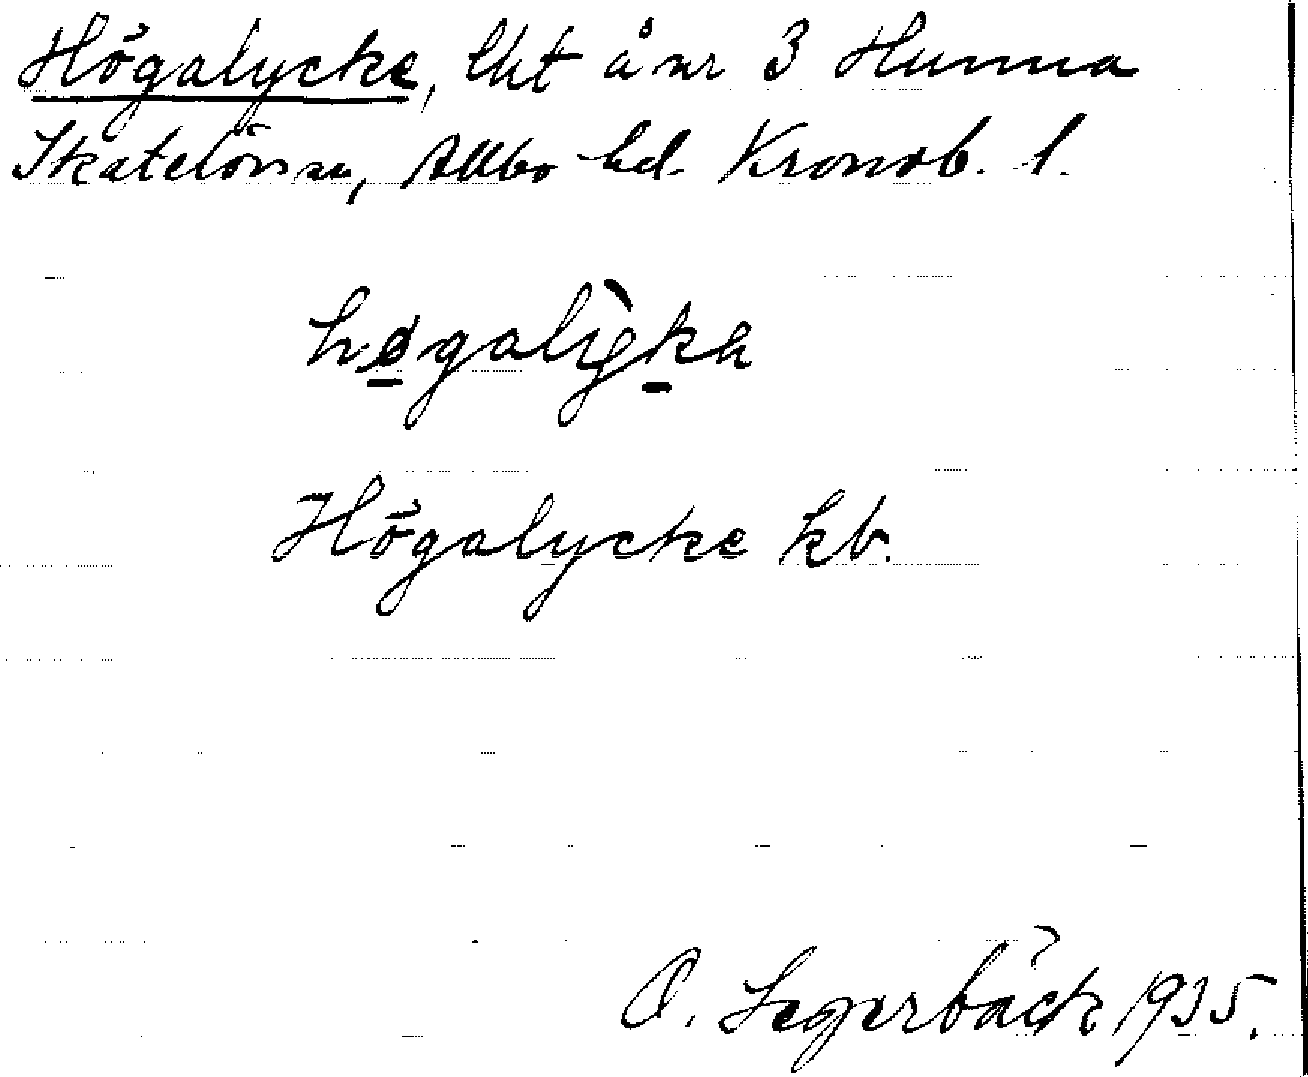 Högalycke, lht å nr 3 Hunna
Skatelövs sn, Allbo hd. Kronob. l.
høgalỳka
Högalycke kb.
O. Segerbäck 1935.